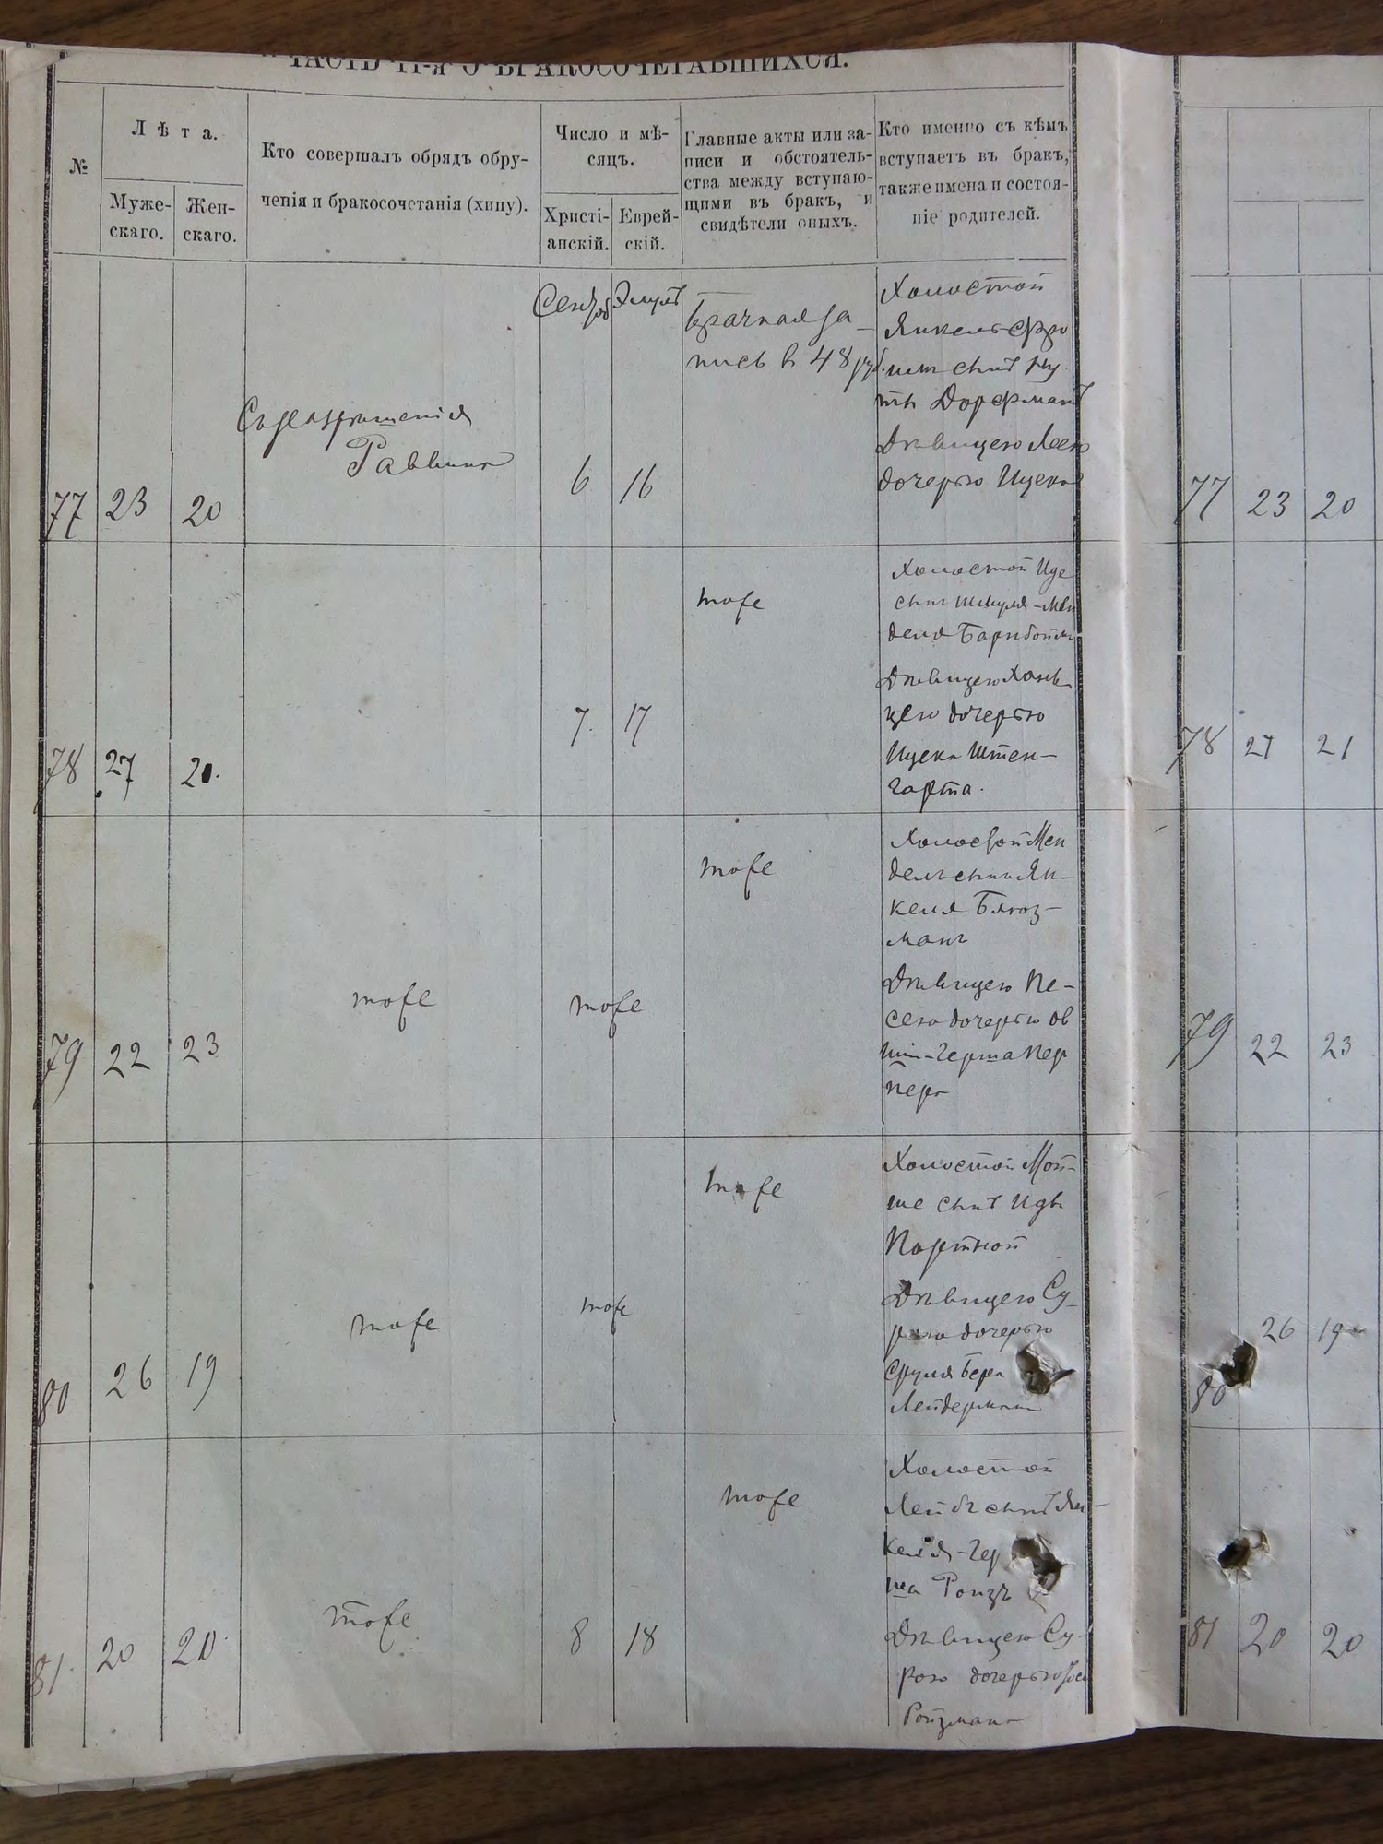 ЧАСТЬ II-я О БРАКОСОЧЕТАВШИХСЯ.
№
Лѣта.
Муже-
скаго.
Жен-
скаго.
Кто совершалъ обрядъ обру-
ченія и бракосочетанія (хупу).
Число и мѣ-
сяцъ.
Христі-
анскій.
Еврей-
скій.
Главные акты или за-
писи и обстоятель-
ства между вступаю-
щими въ бракъ, и
свидѣтели оныхъ.
Кто именно съ кѣмъ
вступаетъ въ бракъ,
также имена и состоя-
ніе родителей.
77
23
20
Съ разрешенія
Раввина
Сентяб
6
Элулъ
16
Брачная за-
пись в 48 руб.
Холостой
Янкель
сынъ
Дорфманъ
Дѣвицею Леею
дочерью Ицека
77 23 20
78
27
20.
7.
17
тоже
Холостой Иде
сынъ Шмуля-Мен
деля
Дѣвицею
цею дочерью
Ицека Штен-
гарта.
78 27 21
79
22
23
тоже
тоже
тоже
Холостой Мен
дель сынъ Ян-
келя Блюз-
манъ
Дѣвицею Пе-
сею дочерью Ов
шія-Герша Пер
пера
79 22 23
80
26
19
тоже
тоже
тоже
Холостой Мой-
ше сынъ Идѣ
Портной
Дѣвицею Су-
рою дочерью
Сруля Бера
Лейдермана
80 26 19
81.
20
20.
тоже
8
18
тоже
Холостой
Лейбъ сынъ Ян-
келя-Гер
ша Ройзъ
Дѣвицею Су-
рою дочерью
Ройзмана
81 20 20